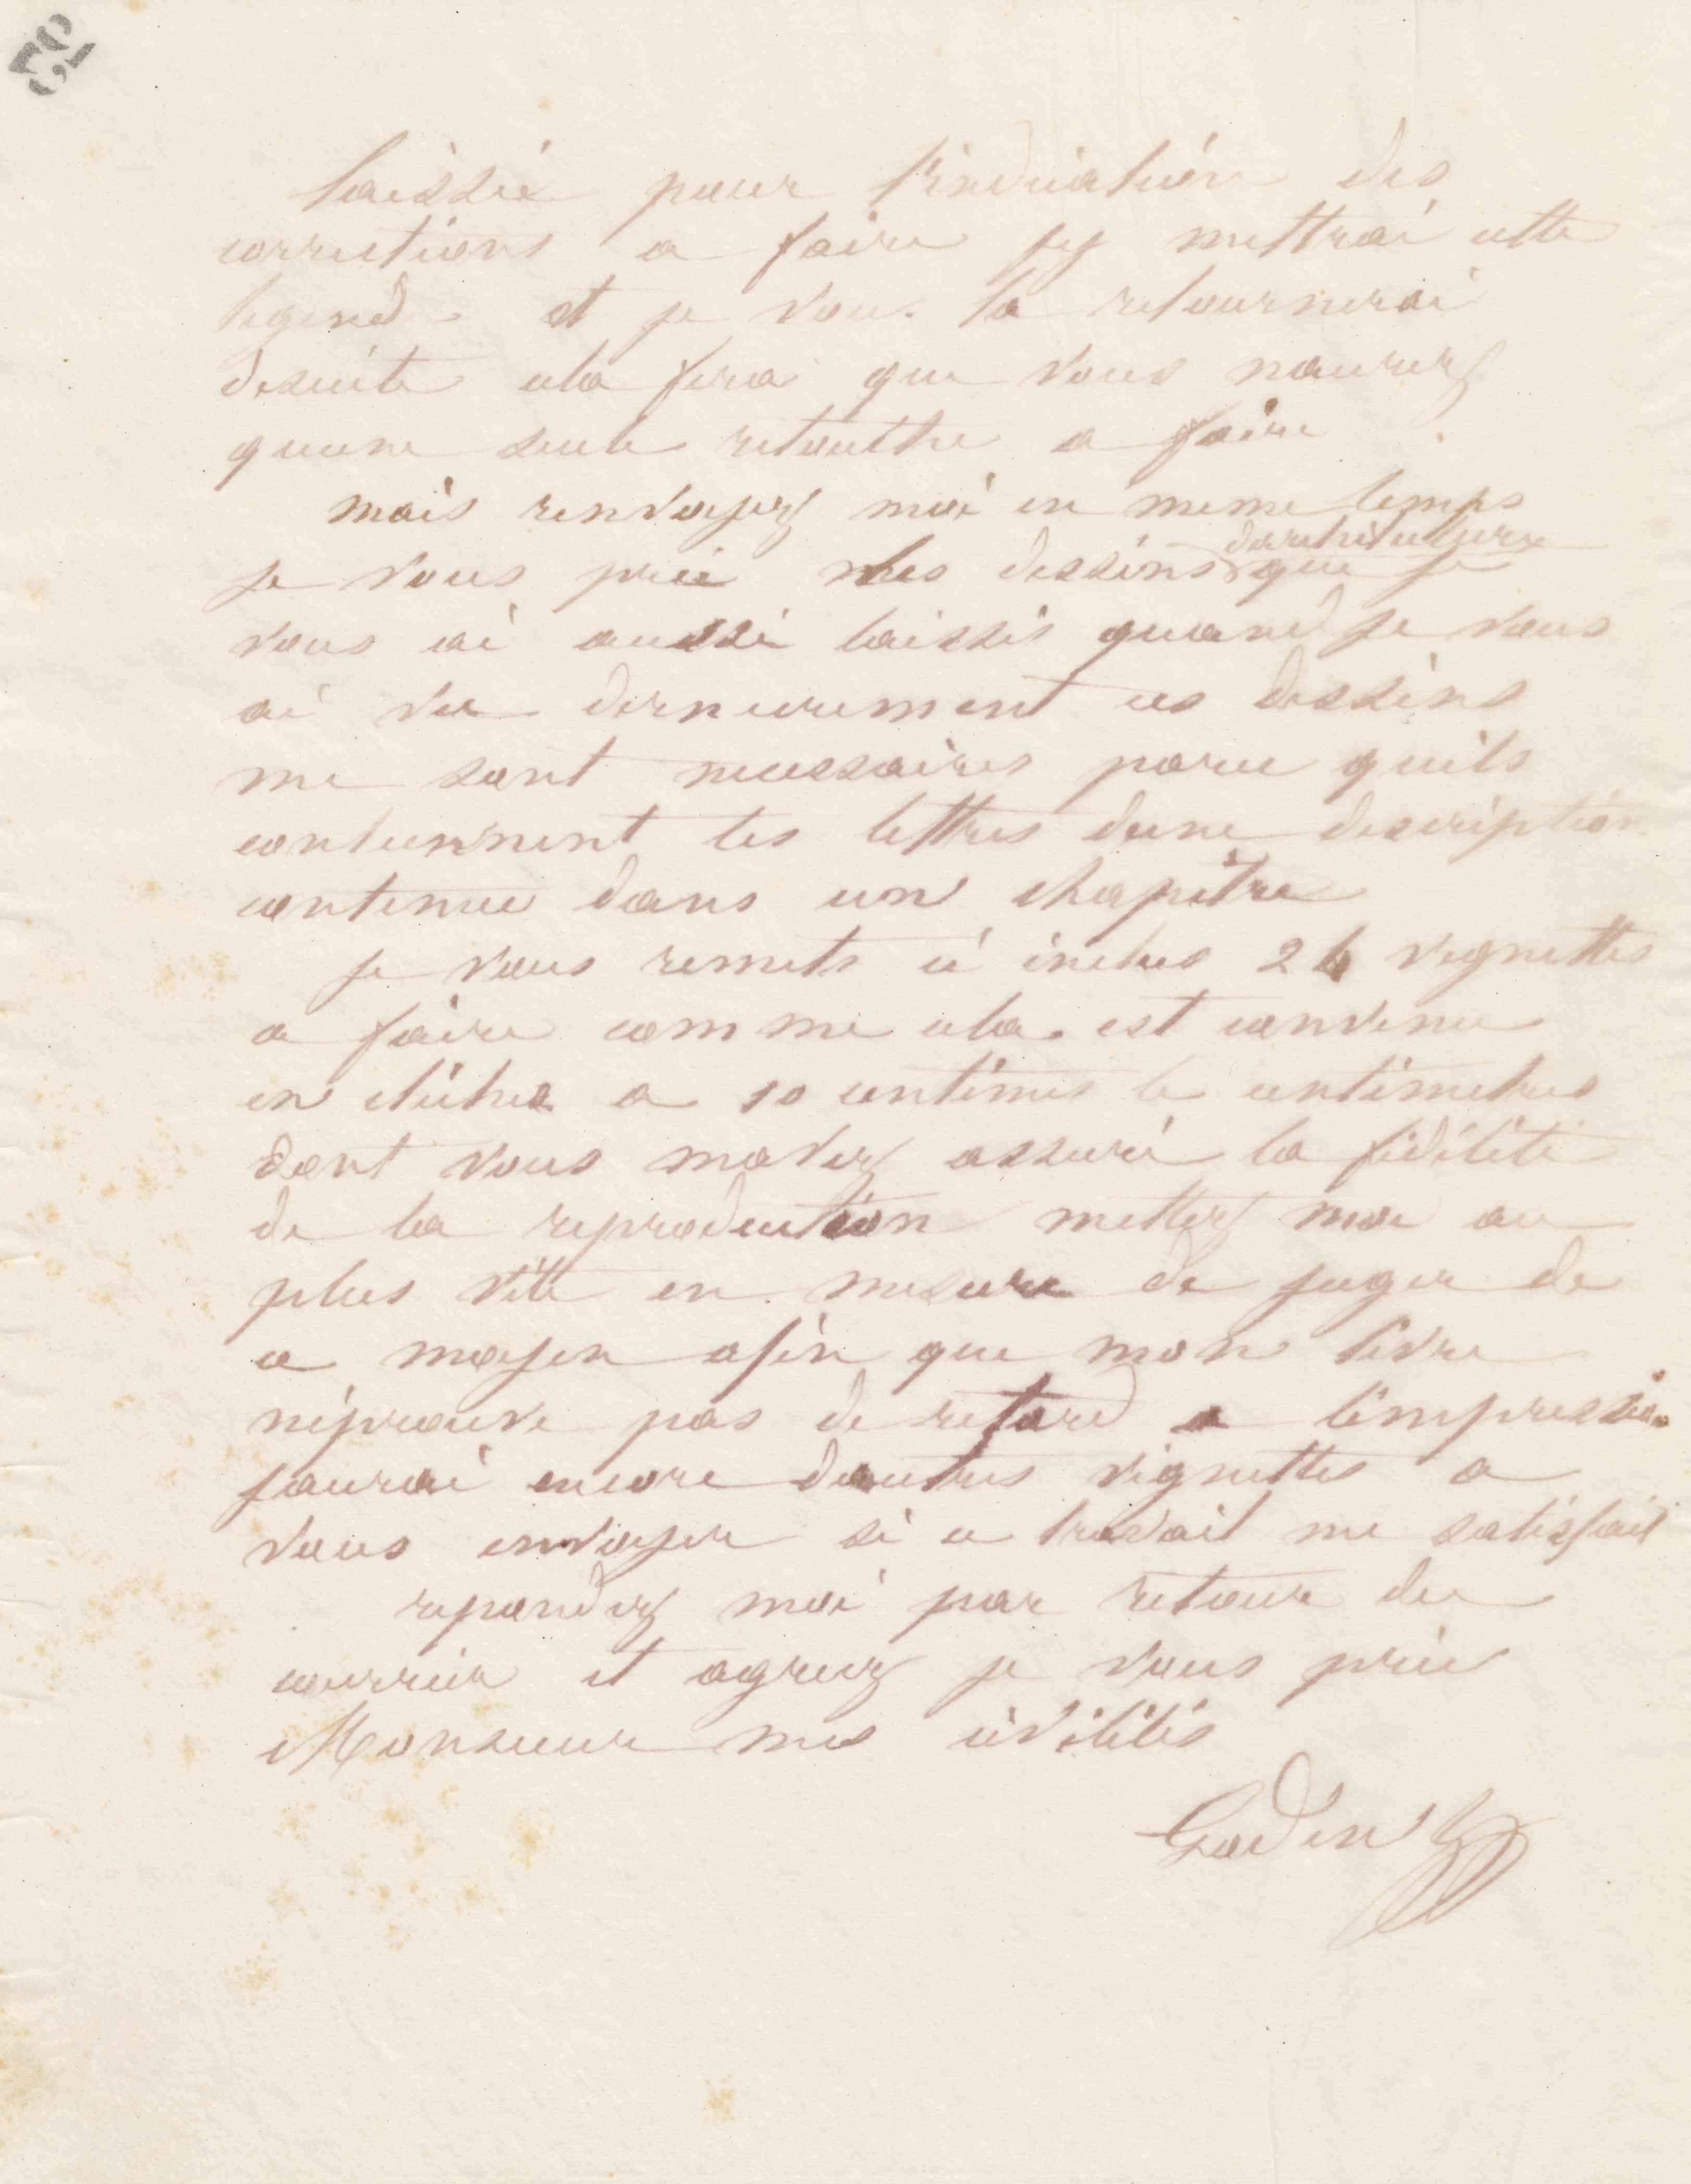 52
laissée pour l'indication des
corrections a faire jy mettrai cette
legende et je vous la retournerai
desuite cela fera que vous naurez
quune seule retouche a faire
mais renvoyez moi en meme temps
darchitecture
je vous prie les dessins que je
vous ai aussi laissés quand je vous
ai vu dernierement ces dessins
me sont necessaires parce quils
contiennent les lettres dune description
contenue dans un chapitre
je vous remets ci inclus 24 vignettes
a faire comme cela est convenu
en clichés a 10 centimes le centimetres
dont vous mavez assuré la fidélité
de la reproduction mettez moi au
plus vite en mesure de juger de
ce moyen afin que mon livre
néprouve pas de retard a limpression
jaurai encore dautres vignettes a
vous envoyer si ce travail me satisfait
repondez moi par retour du
courrier et agreez je vous prie
Monsieur mes civilités
Godin